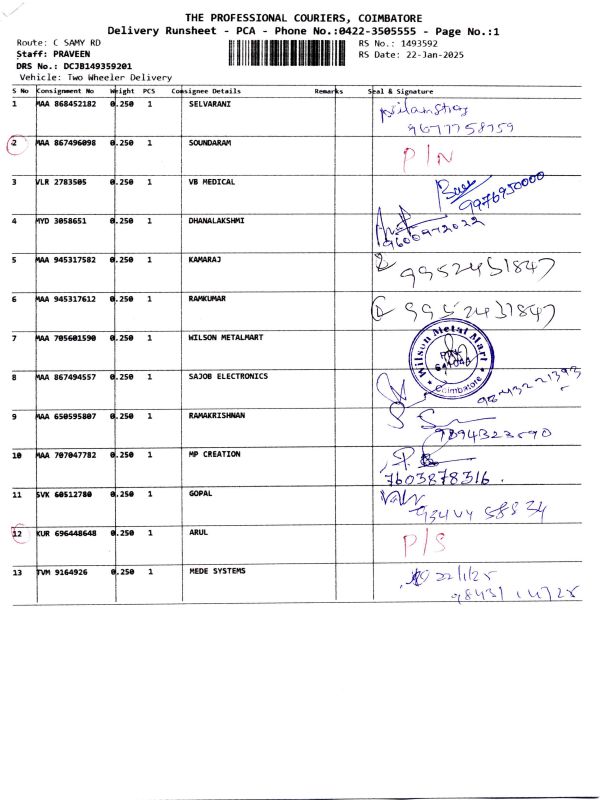 THE PROFESSIONAL COURIERS, COIMBATORE
Delivery Runsheet - PCA - Phone No.:0422-3505555 - Page No.:1
Route: C SAMY RD RS No.: 1493592
Staff: PRAVEEN RS Date: 22-Jan-2025
DRS No.: DCJB149359201
Vehicle: Two Wheeler Delivery
S No Consignment No Weight PCS Consignee Details Remarks Seal & Signature
1 MAA 868452182 0.250 1 SELVARANI
9677758759
2 MAA 867496098 0.250 1 SOUNDARAM P/N
3 VLR 2783505 0.250 1 VB MEDICAL
9976950000
4 MYD 3058651 0.250 1 DHANALAKSHMI
9600972022
5 MAA 945317582 0.250 1 KAMARAJ 9952451847
6 MAA 945317612 0.250 1 RAMKUMAR 9952431847
7 MAA 705601590 0.250 1 WILSON METALMART
Wilson Metal Mart
Coimbatore
8 MAA 867494557 0.250 1 SAJOB ELECTRONICS
9843221393
9 MAA 650595807 0.250 1 RAMAKRISHNAN
10 MAA 707047782 0.250 1 MP CREATION
7603878316.
11 SVK 60512780 0.250 1 GOPAL
12 KUR 696448648 0.250 1 ARUL P/S
13 TVM 9164926 0.250 1 MEDE SYSTEMS 22/1/25